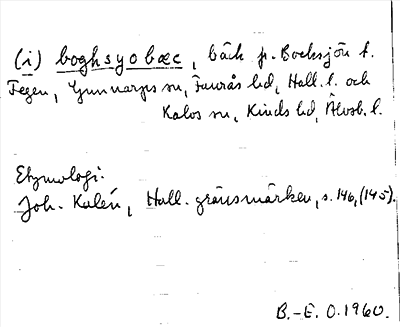 (i) boghsyo bæc, bäck fr. Bocksjön t.
Fegen, Gunnarps sn, Faurås hd, Hall. l. och
Kalvs sn, Kinds hd, Älvsb. l.
Etymologi:
Joh. Kalén, Hall. gränsmärken, s. 146, (145).
B.-E. O. 1960.